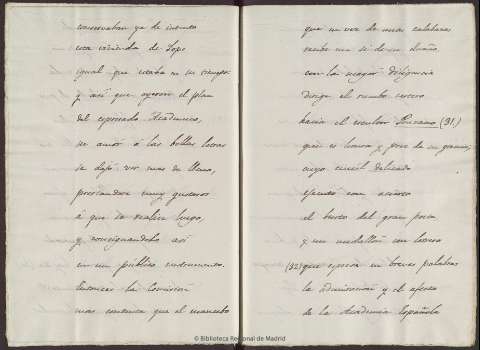 conservaban ya de intento
esta vivienda de Lope
igual que estaba en su tiempo:
y así que oyeron el plan
del expresado Académico,
su amor á las bellas letras
se dejó ver mas de lleno,
prestandose muy gustosos
á que se realice luego,
y consignandolo así
en un público instrumento.
Entonces la Comision
mas contenta que el mancebo
que en vez de unas calabazas
recibe un sí de su dueño,
con la mayor diligencia
dirige el rumbo certero
hacia el escultor Ponzano (31.)
que es honra y prez de su gremio,
cuyo cincel delicado
ejecutó con acierto
el busto del gran poeta
y un medallon con letrero
(32) que espresa en breves palabras
la admiracion y el afecto
de la Academia Española
© Biblioteca Regional de Madrid